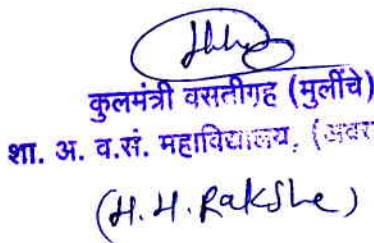 कुलमंत्री वसतीगृह (मुलींचे)
शा. अ. व.सं. महाविद्यालय, 
(H. H. Rakshe)